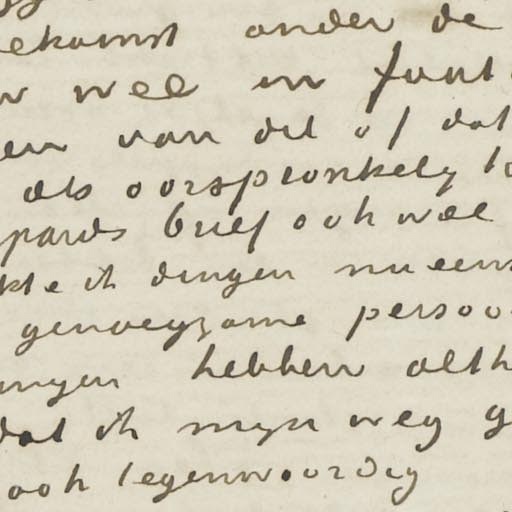 ekomst onder de
wel in fout
en van dit of dat
als oorspronkelijk to
pards brief ook wel
kte ik dingen nu eens
genoegzame persoo
ingen hebben alth
dat ik mijn weg g
ook tegenwoordig